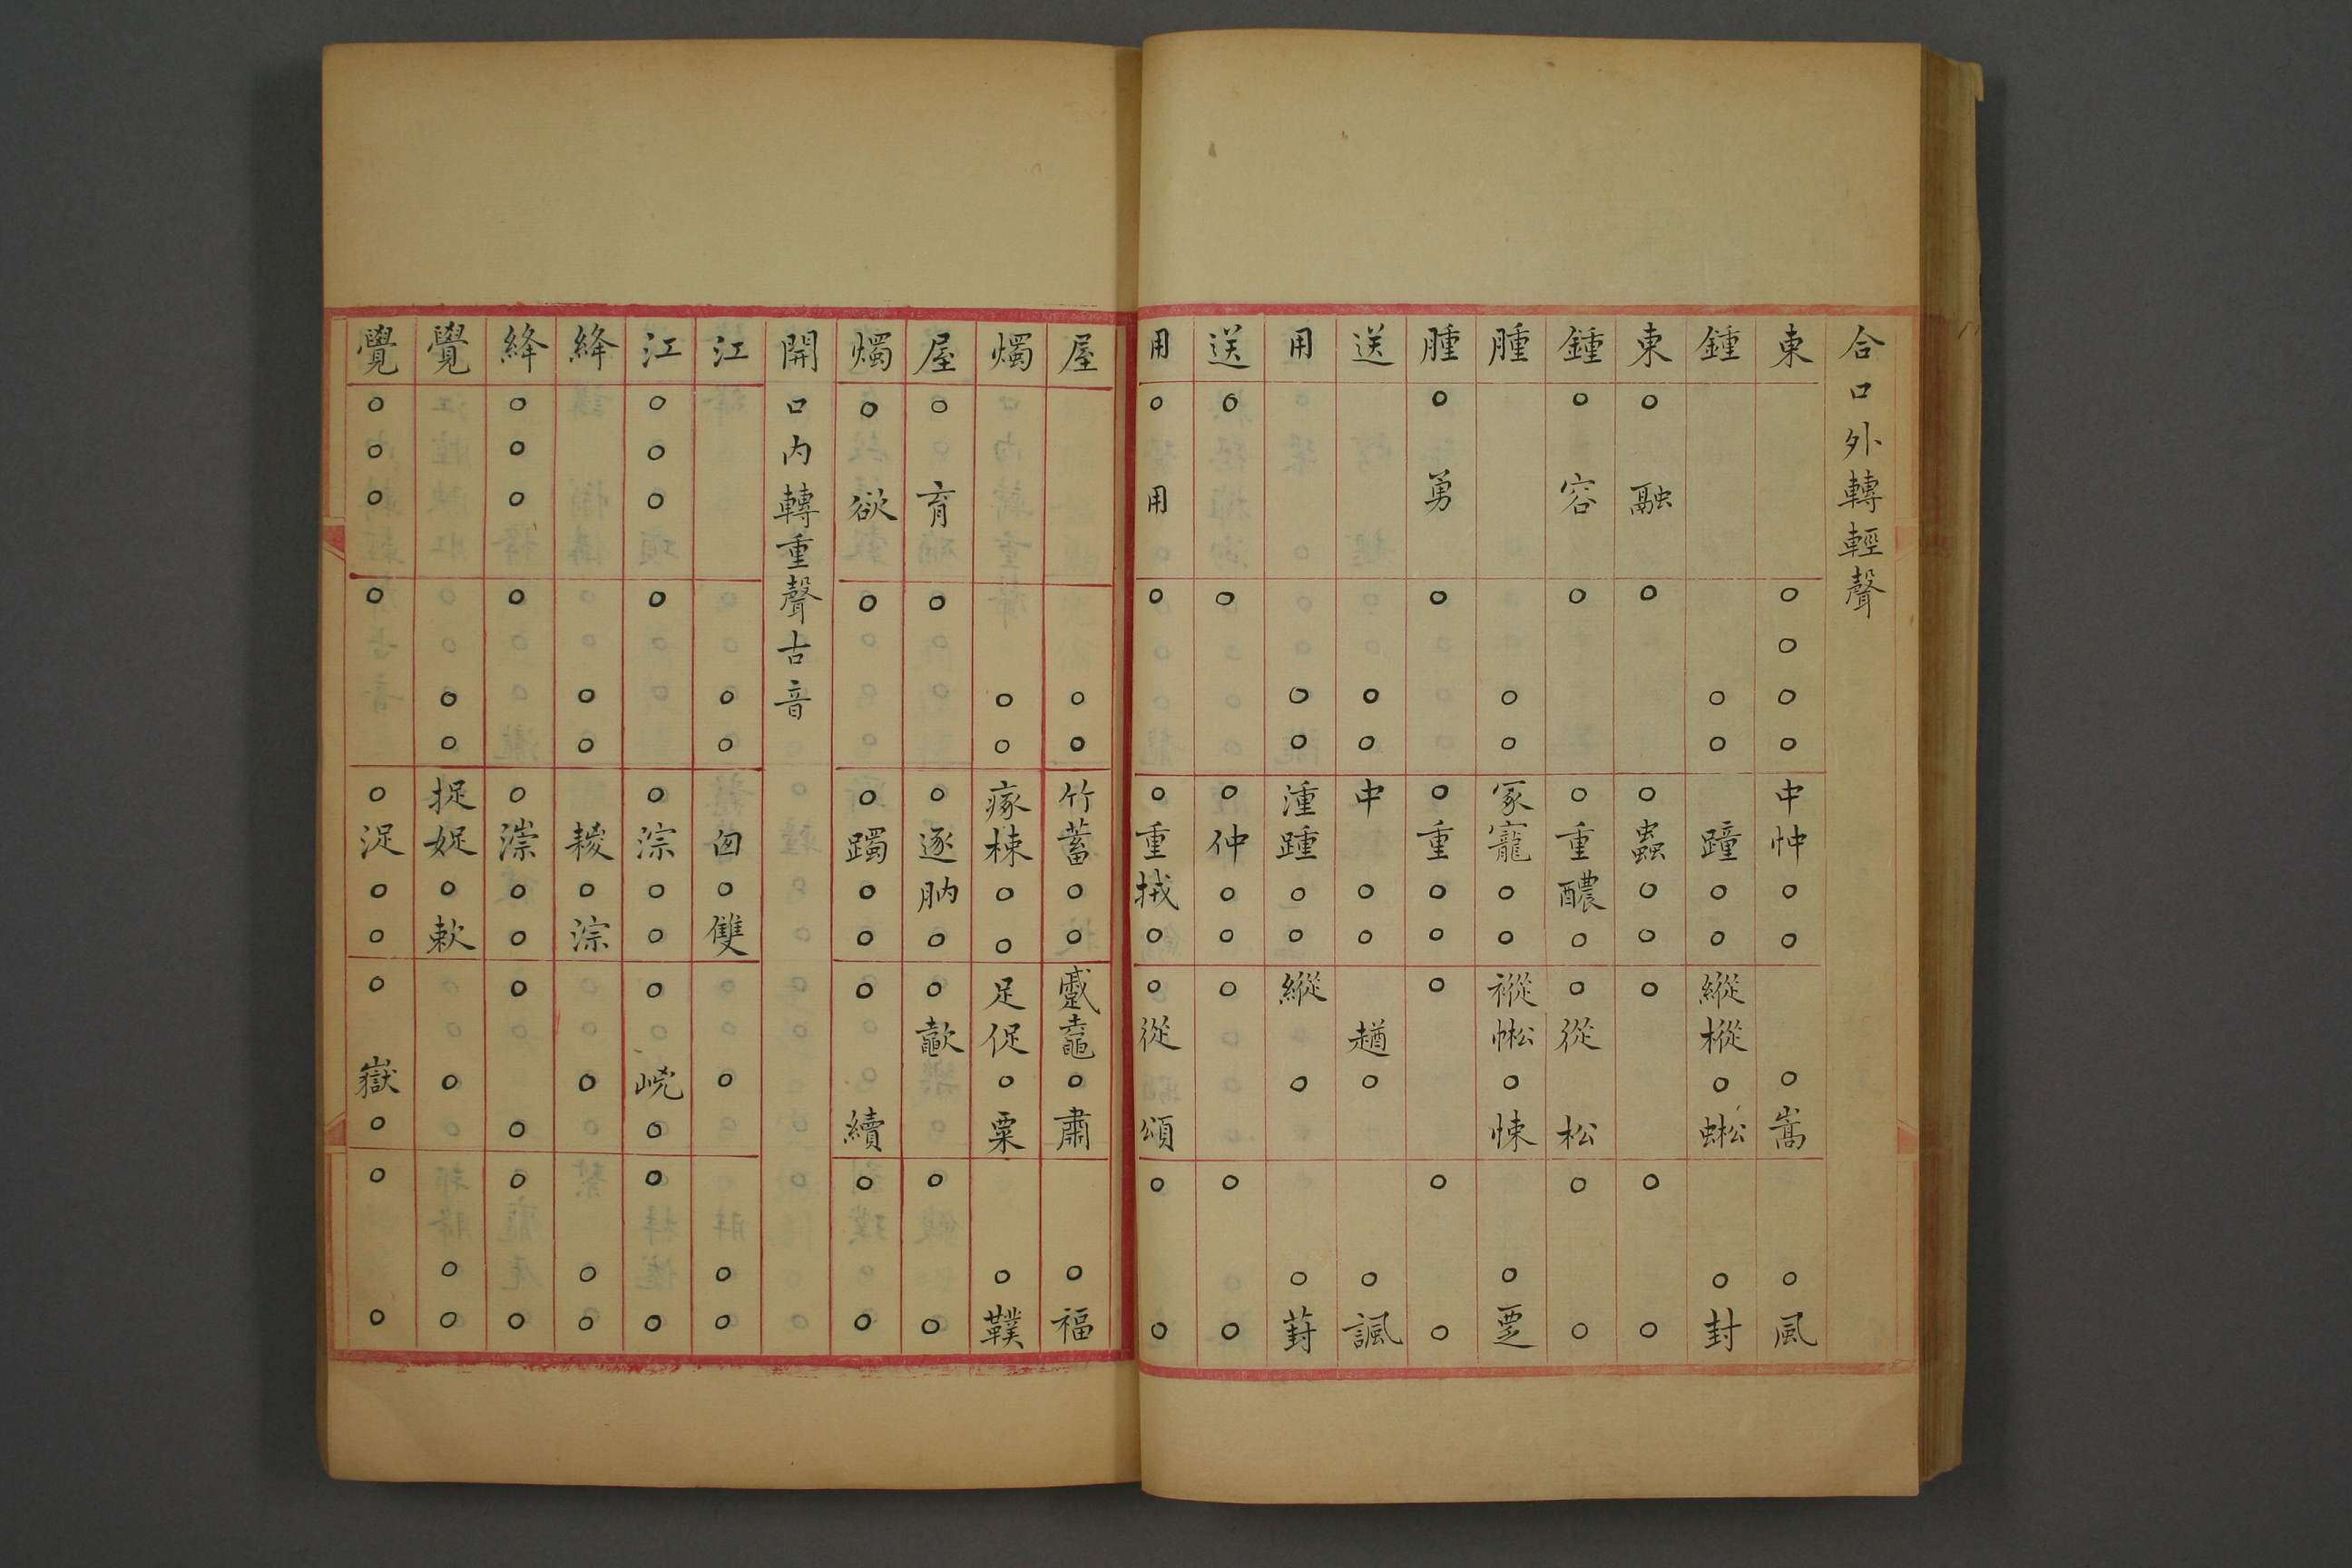 合口外轉輕聲
東○○○○中忡○○○嵩○風
鍾○○蹱○○縱樅○蜙○封
東○融○○蟲○○○○○
鍾○容○○重醲○○從松○○
腫○○冢寵○○○悚○覂
腫○勇○○重○○○○○
送○○中○○趥○○諷
用○○湩踵○○縱○○葑
送○○○仲○○○○○
用○用○○重○○從頌○○
屋○○竹蓄○○蹙鼀○肅○福
燭○○瘃楝○○足促○粟○
屋○育○○逐肭○○歜○○
燭○欲○○躅○○○續○○
開口內轉重聲古音
江○○○雙○○○
江○○○○○淙○○○○○○
絳○○○淙○○○
絳○○○○○漴○○○○○○
覺○○捉娖○○○○
覺○○○○○浞○○○嶽○○○